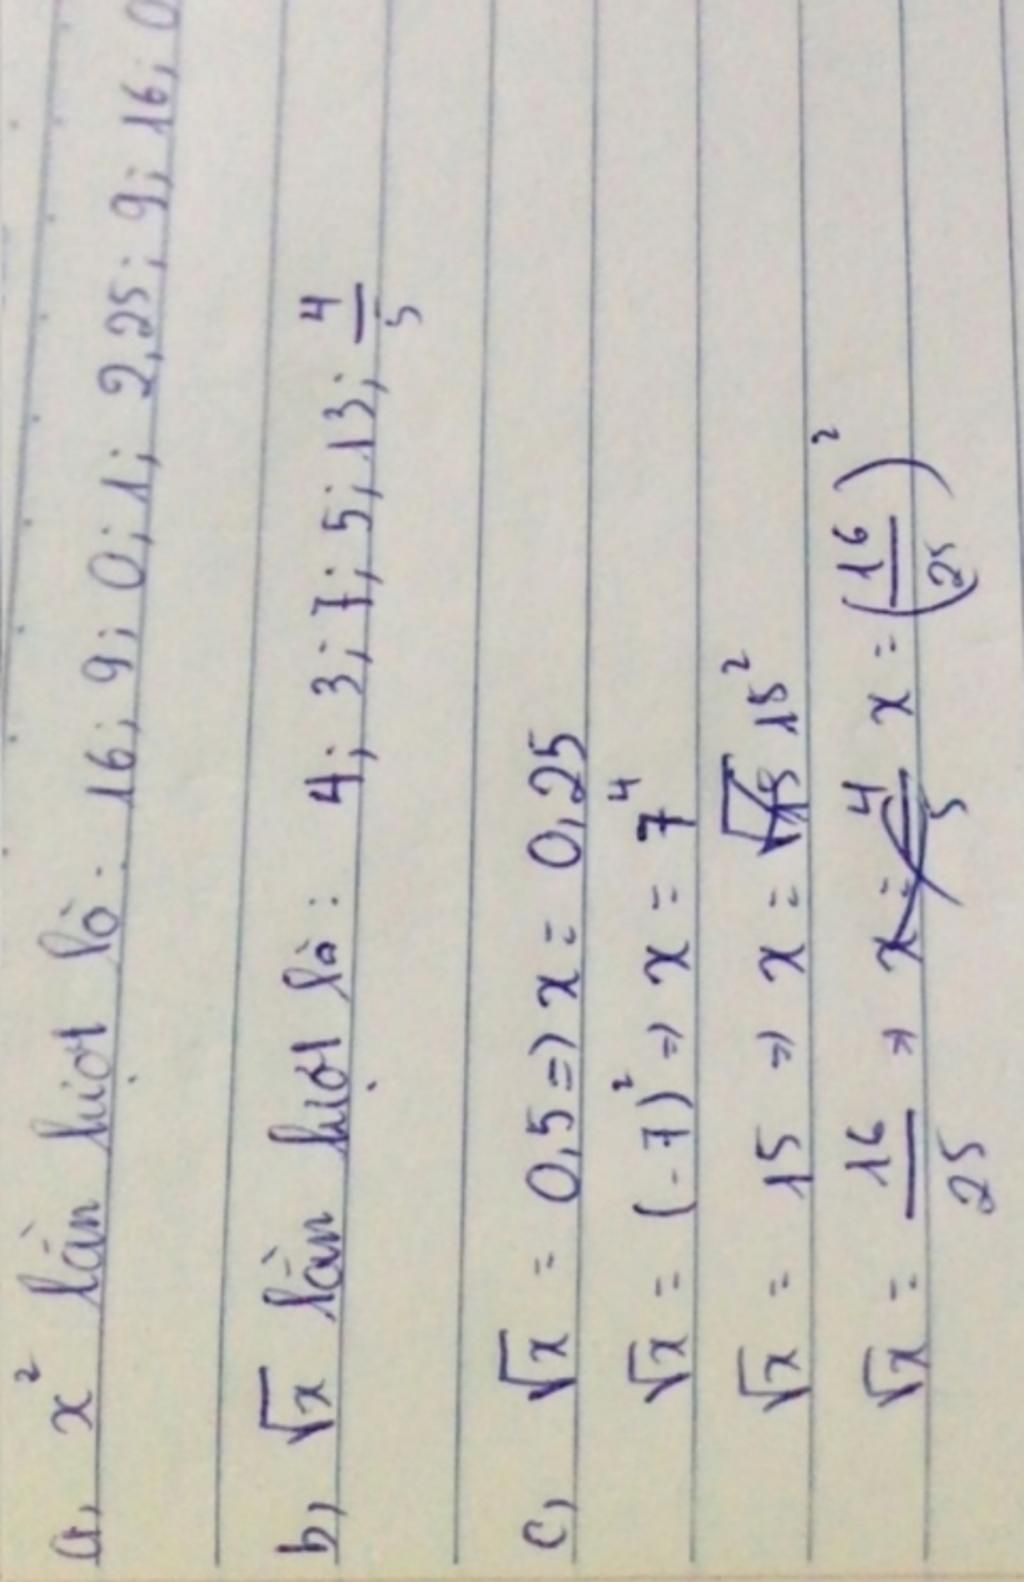 a, x² lần lượt là: 16; 9; 0; 1; 2,25; 9; 16; 0
b, √x lần lượt là: 4; 3; 7; 5; 13; 4/5
c, √x = 0,5 => x = 0,25
√x = (-7)² => x = 7⁴
√x = 15 => x = 15²
√x = 16/25 => x = 4/5 x = (16/25)²